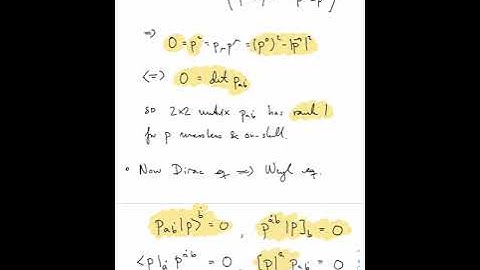 =>
0 = p² = pμ p^μ = (p⁰)² - |p⃗|²
<=> 0 = det p_{aḃ}
so 2x2 matrix p_{aḃ} has rank 1
for p massless & on-shell.
• Now Dirac eq => Weyl eq.
p_{aḃ}|p⟩^{ḃ} = 0 , p^{ȧb}|p]_b = 0
⟨p|_ȧ p^{ȧb} = 0 , [p|^a p_{aḃ} = 0